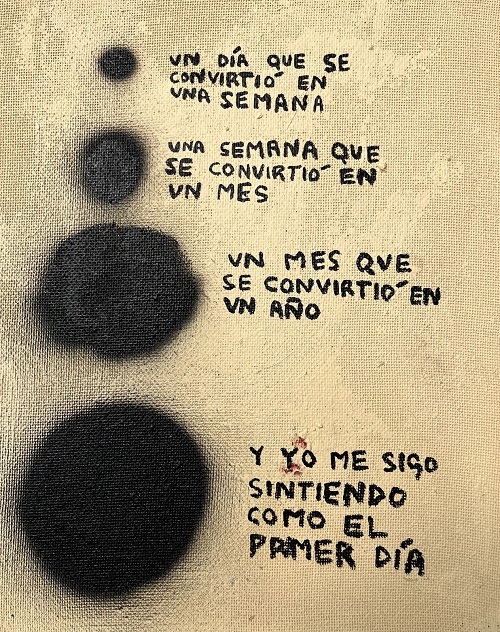 UN DÍA QUE SE
CONVIRTIÓ EN
UNA SEMANA
UNA SEMANA QUE
SE CONVIRTIÓ EN
UN MES
UN MES QUE
SE CONVIRTIÓ EN
UN AÑO
Y YO ME SIGO
SINTIENDO
COMO EL
PRIMER DÍA